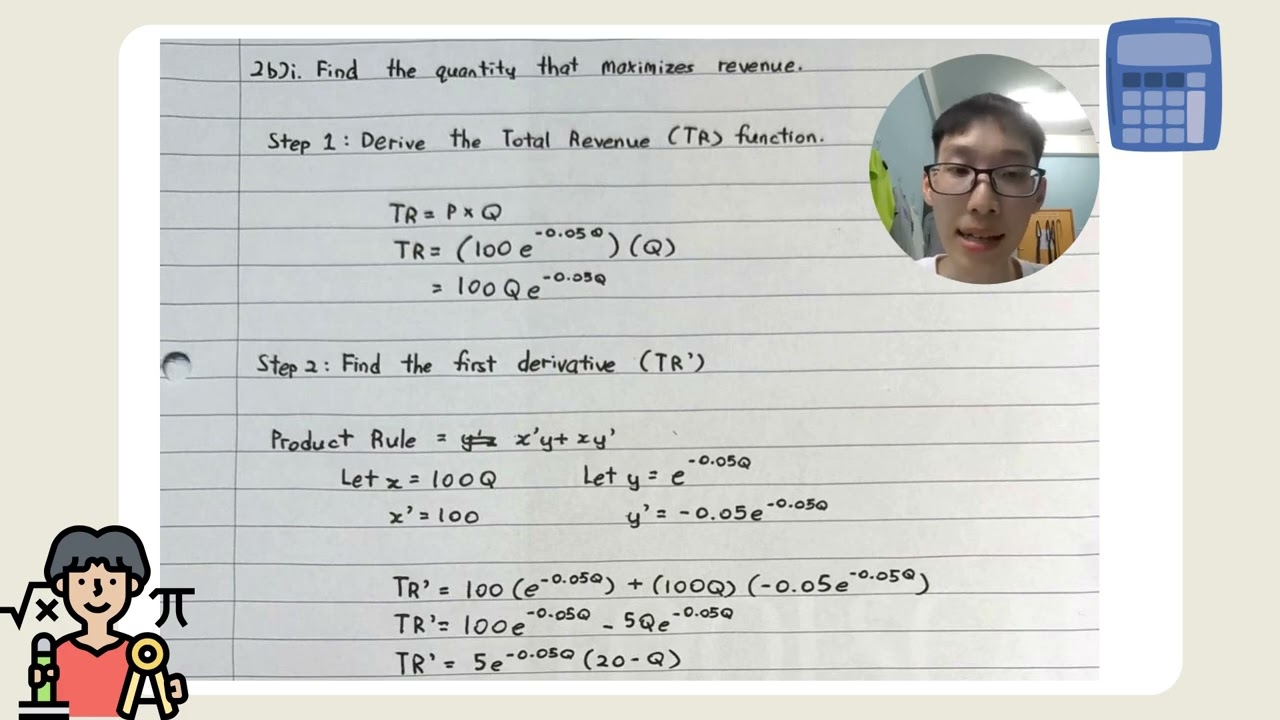 2b)i. Find the quantity that maximizes revenue.
Step 1: Derive the Total Revenue (TR) function.
TR = P × Q
TR = (100e^-0.05Q)(Q)
= 100Qe^-0.05Q
Step 2: Find the first derivative (TR')
Product Rule = x'y + xy'
Let x = 100Q Let y = e^-0.05Q
x' = 100 y' = -0.05e^-0.05Q
TR' = 100(e^-0.05Q) + (100Q)(-0.05e^-0.05Q)
TR' = 100e^-0.05Q - 5Qe^-0.05Q
TR' = 5e^-0.05Q (20 - Q)
√x π